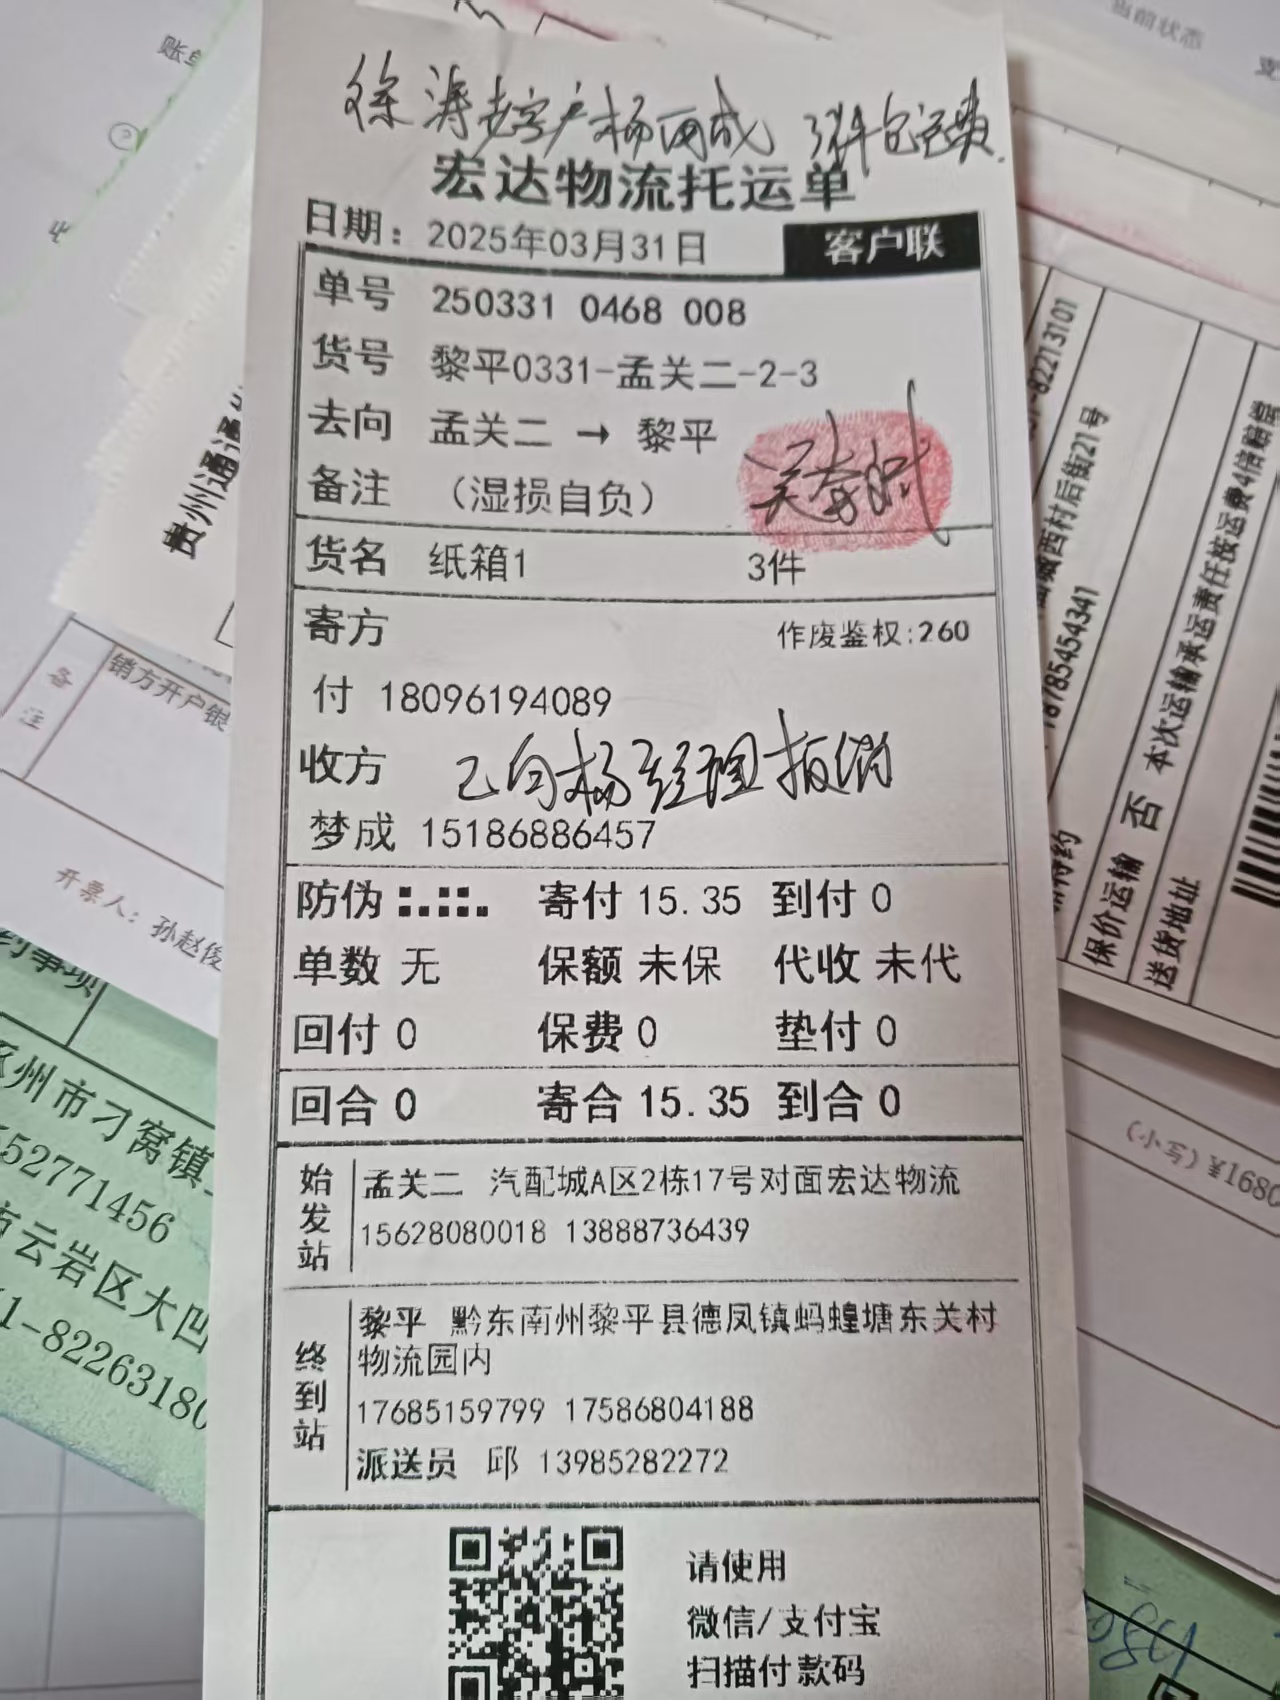 徐涛老客户杨丙成 3件包运费.
宏达物流托运单
日期：2025年03月31日 客户联
单号 250331 0468 008
货号 黎平0331-孟关二-2-3
去向 孟关二 → 黎平
备注 （湿损自负）
货名 纸箱1 3件
寄方 作废鉴权:260
付 18096194089
收方 已向杨经理报备
梦成 15186886457
防伪 寄付 15.35 到付 0
单数 无 保额 未保 代收 未代
回付 0 保费 0 垫付 0
回合 0 寄合 15.35 到合 0
始发站 孟关二 汽配城A区2栋17号对面宏达物流
15628080018 13888736439
终到站 黎平 黔东南州黎平县德凤镇蚂蝗塘东关村
物流园内
17685159799 17586804188
派送员 邱 13985282272
请使用
微信/支付宝
扫描付款码
当前状态
账单
贵州通
备注
销方开户银
开票人：孙赵俊
约事项
涿州市刁窝镇
527771456
市云岩区大凹
1-82263180
-82213101
西村后街21号
18785454341
本次运输承运责任按运费4倍赔
保价运输 否
送货地址
(小写) ¥1680